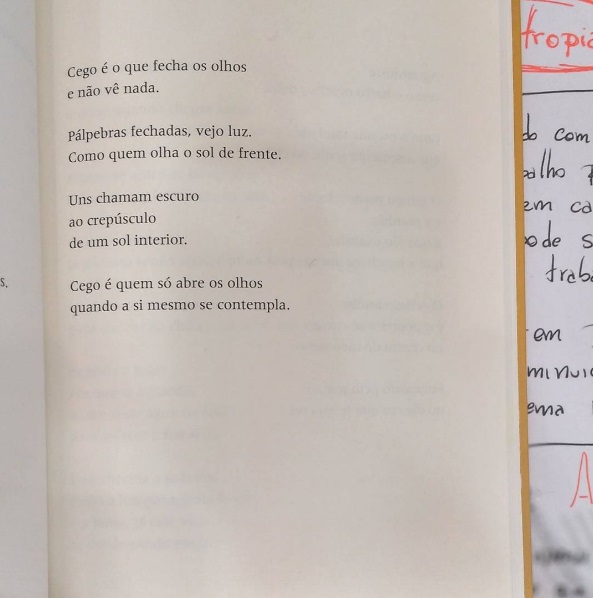 Cego é o que fecha os olhos
e não vê nada.
Pálpebras fechadas, vejo luz.
Como quem olha o sol de frente.
Uns chamam escuro
ao crepúsculo
de um sol interior.
Cego é quem só abre os olhos
quando a si mesmo se contempla.
s.
tropic
do com
alho
em ca
ode s
trab
em
minui
ema
A